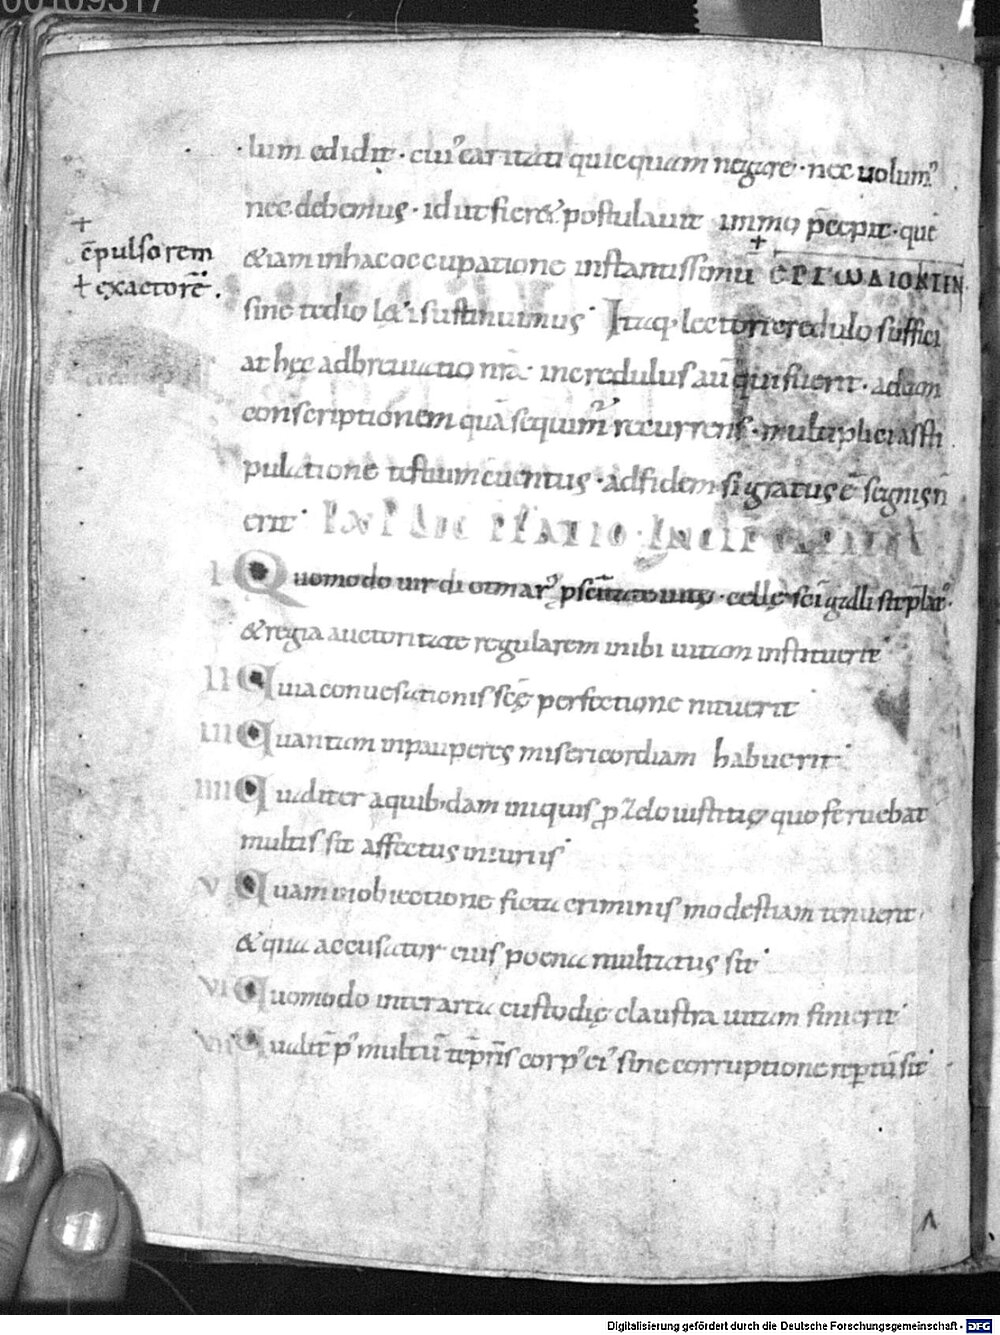 ·lum edidit· cui᾽ caritati quicquam negare· nec uolum᾽
nec debemus· id ut fier& postulauit immo p̄cepit· quē
+
ēpulsorem
+ exactorē.
&iam in hac occupatione instantissimū ЄΡΓⲰΔΙΟΚΤΕΝ
sine tedio la&i sustinuimus· Itaq· lectori credulo suffici
at hęc adbreuiatio nr̄a· incredulus aū qui fuerit· ad eam
conscriptionem quā sequim᾽ recurrens· multiplici asti
pulatione testium euentus· ad fidem si ignatus ē segnis n̄
erit·
I Quomodo uir di otmar᾽ celle sci galli
& regia auctoritate regularem inibi uitam instituerit
II Quia conuersationis scę perfectione nituerit
III Quantam in pauperes misericordiam habuerit·
IIII Qualiter a quibdam iniquis p zelo iustitię quo feruebat
multis sit affectus iniuriis·
V Quam in obiectione ficti criminis modestiam tenuerit·
& qua accusator eius poena multatus sit·
VI Quomodo inter arta custodię claustra uitam finierit·
VII Qualit̄ p᾽ multū tēpris corp᾽ ei᾽ sine corruptione reptū sit·
Λ
Digitalisierung gefördert durch die Deutsche Forschungsgemeinschaft - DFG